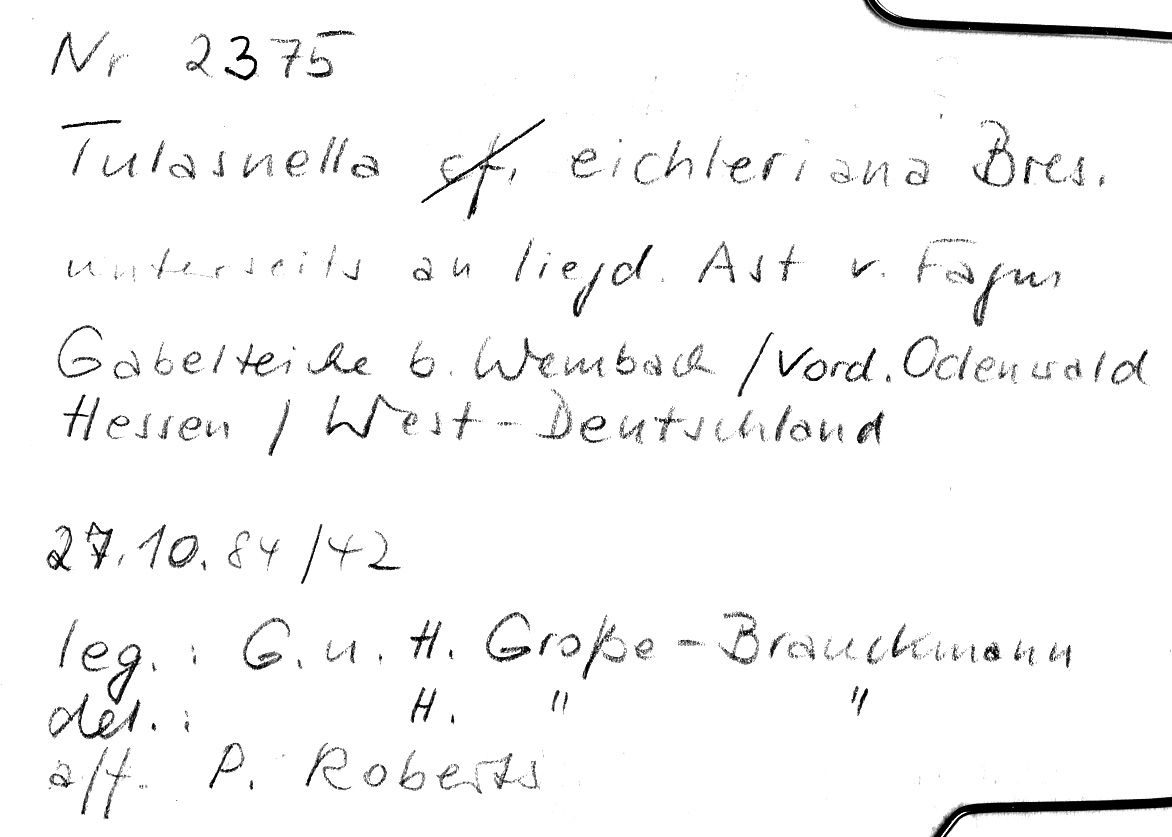 Nr 2375
Tulasnella cf. eichleriana Bres.
unterseits an liegd. Ast v. Fagus
Gabelteiche b. Wembach / Vord. Odenwald
Hessen / West-Deutschland
27.10.84/42
leg.: G. u. H. Große-Brauckmann
det.: H. " "
aff. P. Roberts